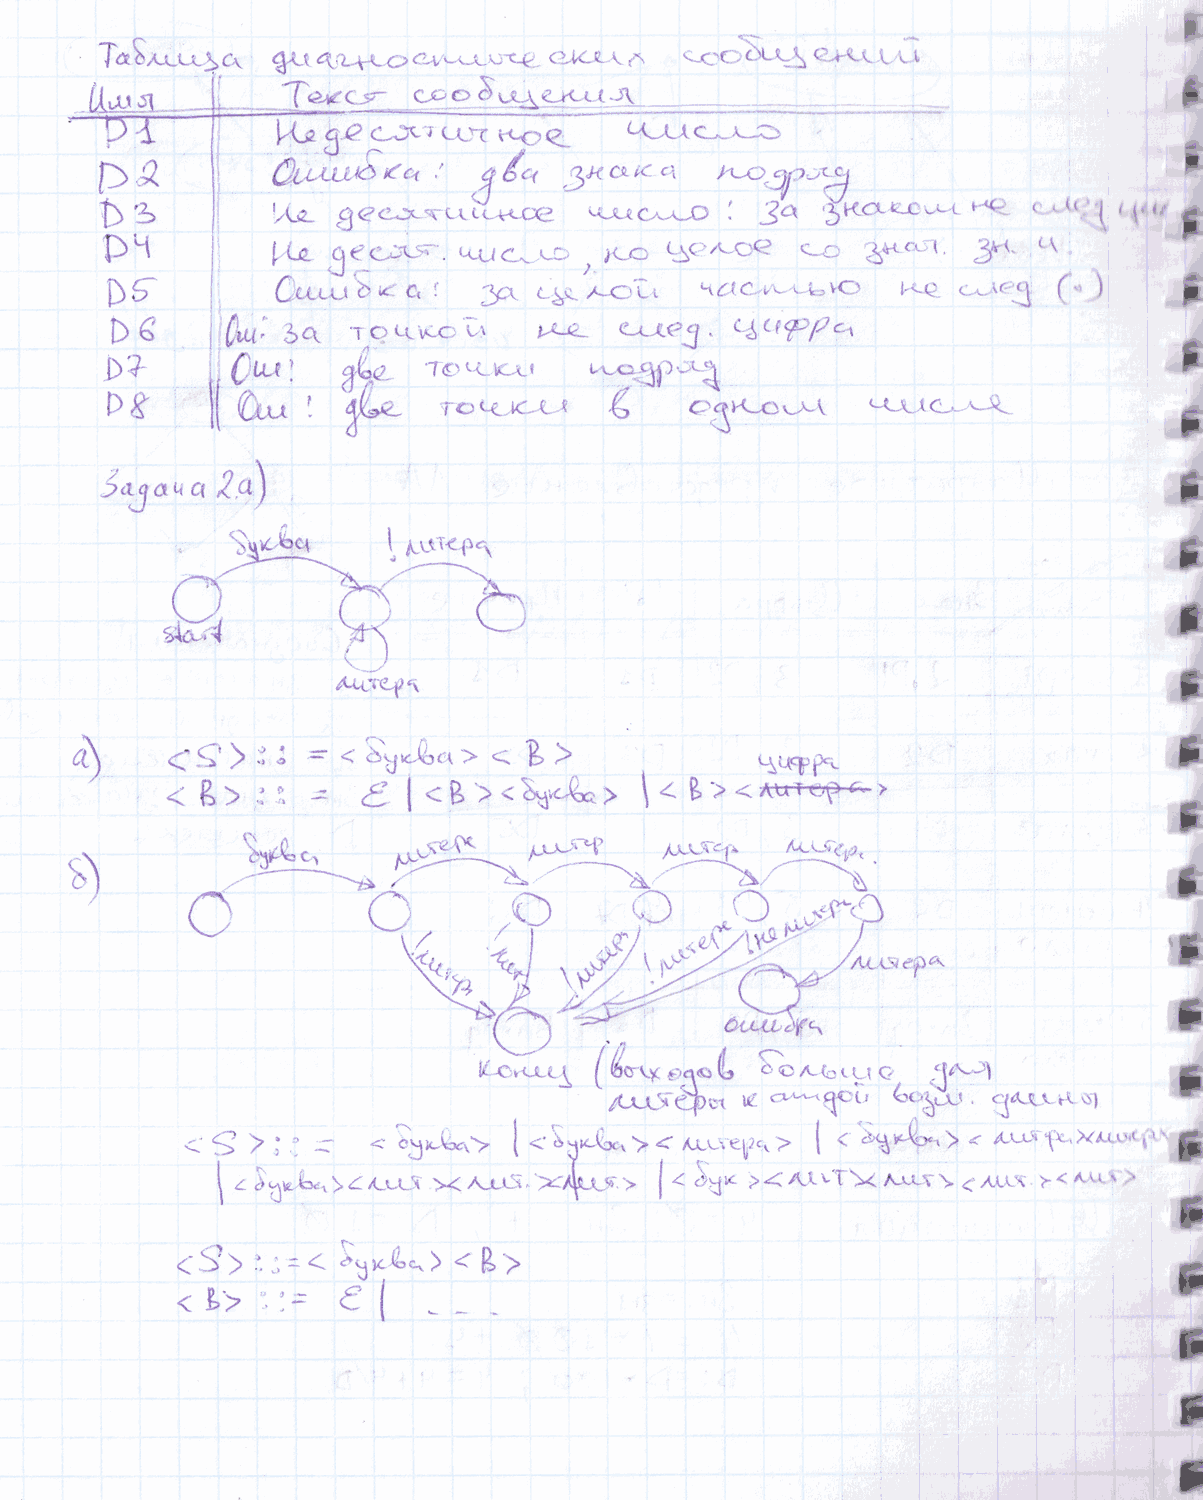 Таблица диагностических сообщений
Имя Текст сообщения
D1 Недесятичное число
D2 Ошибка! два знака подряд
D3 Не десятичное число! За знаком не след
D4 Не десят. число, но целое со знач. зн. ч.
D5 Ошибка! за целой частью не след (.)
D6 Ош! за точкой не след. цифра
D7 Ош! две точки подряд
D8 Ош! две точки в одном числе
Задача 2.а)
буква !литера
start
литера
а) <S>::=<буква><B>
цифра
<B>::= ε|<B><буква>|<B><литера>
б) буква литера литер литер литера.
!литер !лит !литера !литера !не литера
литера
ошибка
конец (выходов больше для
литеры каждой возм. длины
<S>::= <буква>|<буква><литера>|<буква><литера><литера
|<буква><лит.><лит.><лит.>|<бук><лит><лит><лит.><лит>
<S>::=<буква><B>
<B>::= ε| - - -